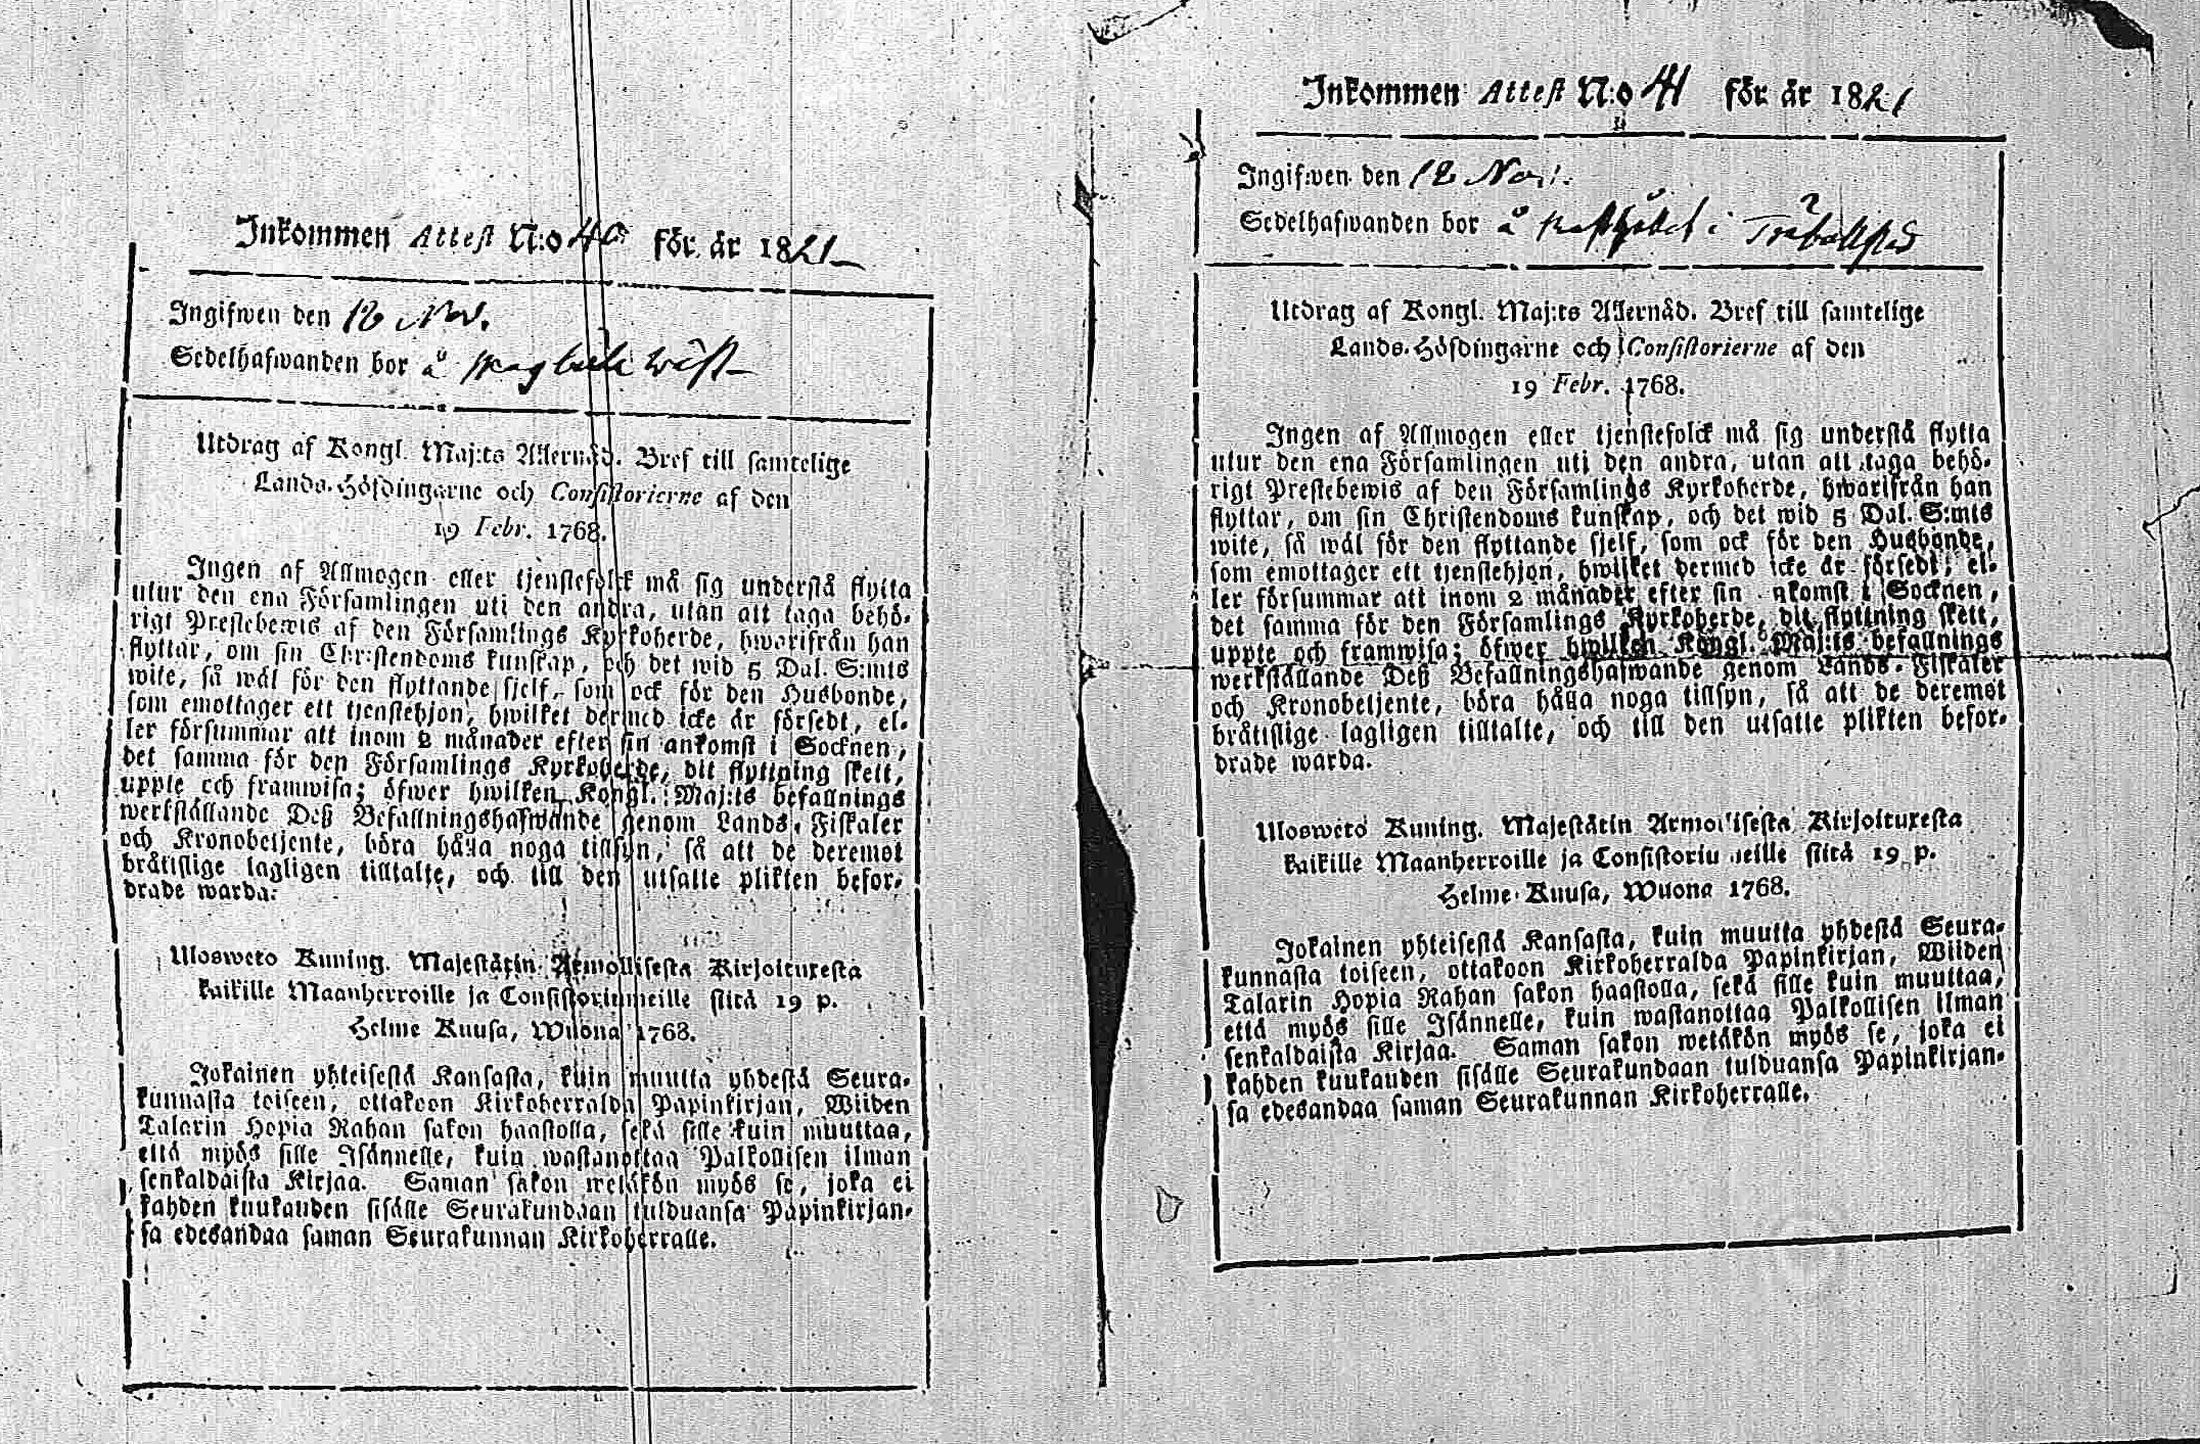 Inkommen Attest N:o 40 för år 1821
Ingifwen den 12 Nov.
Sedelhafwanden bor å
Utdrag af Kongl. Maj:ts Allernåd. Bref till samtelige
Lands-Höfdingarne och Consistorierne af den
19 Febr. 1768.
Ingen af Allmogen eller tjenstefolck må sig understå flytta
utur den ena Församlingen uti den andra, utan att taga behö-
rigt Prestebewis af den Församlings Kyrkoherde, hwarifrån han
flyttar, om sin Christendoms kunskap, och det wid 5 Dal. S:mts
wite, så wäl för den flyttande sjelf, som ock för den Husbonde,
som emottager ett tjenstehjon, hwilket dermed icke är försedt, el-
ler försummar att inom 2 månader efter sin ankomst i Socknen,
det samma för den Församlings Kyrkoherde, dit flyttning skett,
uppte och framwisa; öfwer hwilken Kongl. Maj:ts befallnings
werkställande Deß Befallningshafwande genom Lands-Fiskaler
och Kronobetjente, böra hålla noga tillsyn, så att de deremot
bråtislige lagligen tilltalte, och till den utsatte plikten befor-
drade warda.
Ulosweto Kuning. Majestätin Armollisesta Kirjoituxesta
kaikille Maanherroille ja Consistoriumeille siitä 19 p.
Helme-Kuusa, Wuona 1768.
Jokainen yhteisestä Kansasta, kuin muutta yhdestä Seura-
kunnasta toiseen, ottakoon Kirkoherralda Papinkirjan, Wiiden
Talarin Hopia Rahan sakon haastolla, sekä sille kuin muuttaa,
että myös sille Isännelle, kuin wastanottaa Palkollisen ilman
senkaldaista Kirjaa. Saman sakon wetäkön myös se, joka ei
kahden kuukauden sisälle Seurakundaan tulduansa Papinkirjan-
sa edesandaa saman Seurakunnan Kirkoherralle.
Inkommen Attest N:o 41 för år 1821
Ingifwen den 12 Nov.
Sedelhafwanden bor å i Träbollstad
Utdrag af Kongl. Maj:ts Allernåd. Bref till samtelige
Lands-Höfdingarne och Consistorierne af den
19 Febr. 1768.
Ingen af Allmogen eller tjenstefolck må sig understå flytta
utur den ena Församlingen uti den andra, utan att taga behö-
rigt Prestebewis af den Församlings Kyrkoherde, hwarifrån han
flyttar, om sin Christendoms kunskap, och det wid 5 Dal. S:mts
wite, så wäl för den flyttande sjelf, som ock för den Husbonde,
som emottager ett tjenstehjon, hwilket dermed icke är försedt; el-
ler försummar att inom 2 månader efter sin ankomst i Socknen,
det samma för den Församlings Kyrkoherde, dit flyttning skett,
uppte och framwisa; öfwer hwilken Kongl. Maj:ts befallnings
werkställande Deß Befallningshafwande genom Lands-Fiskaler
och Kronobetjente, böra hålla noga tillsyn, så att de deremot
bråtislige lagligen tilltalte, och till den utsatte plikten befor-
drade warda.
Ulosweto Kuning. Majestätin Armollisesta Kirjoituxesta
kaikille Maanherroille ja Consistoriumeille siitä 19 p.
Helme-Kuusa, Wuona 1768.
Jokainen yhteisestä Kansasta, kuin muutta yhdestä Seura-
kunnasta toiseen, ottakoon Kirkoherralda Papinkirjan, Wiiden
Talarin Hopia Rahan sakon haastolla, sekä sille kuin muuttaa,
että myös sille Isännelle, kuin wastanottaa Palkollisen ilman
senkaldaista Kirjaa. Saman sakon wetäkön myös se, joka ei
kahden kuukauden sisälle Seurakundaan tulduansa Papinkirjan-
sa edesandaa saman Seurakunnan Kirkoherralle.